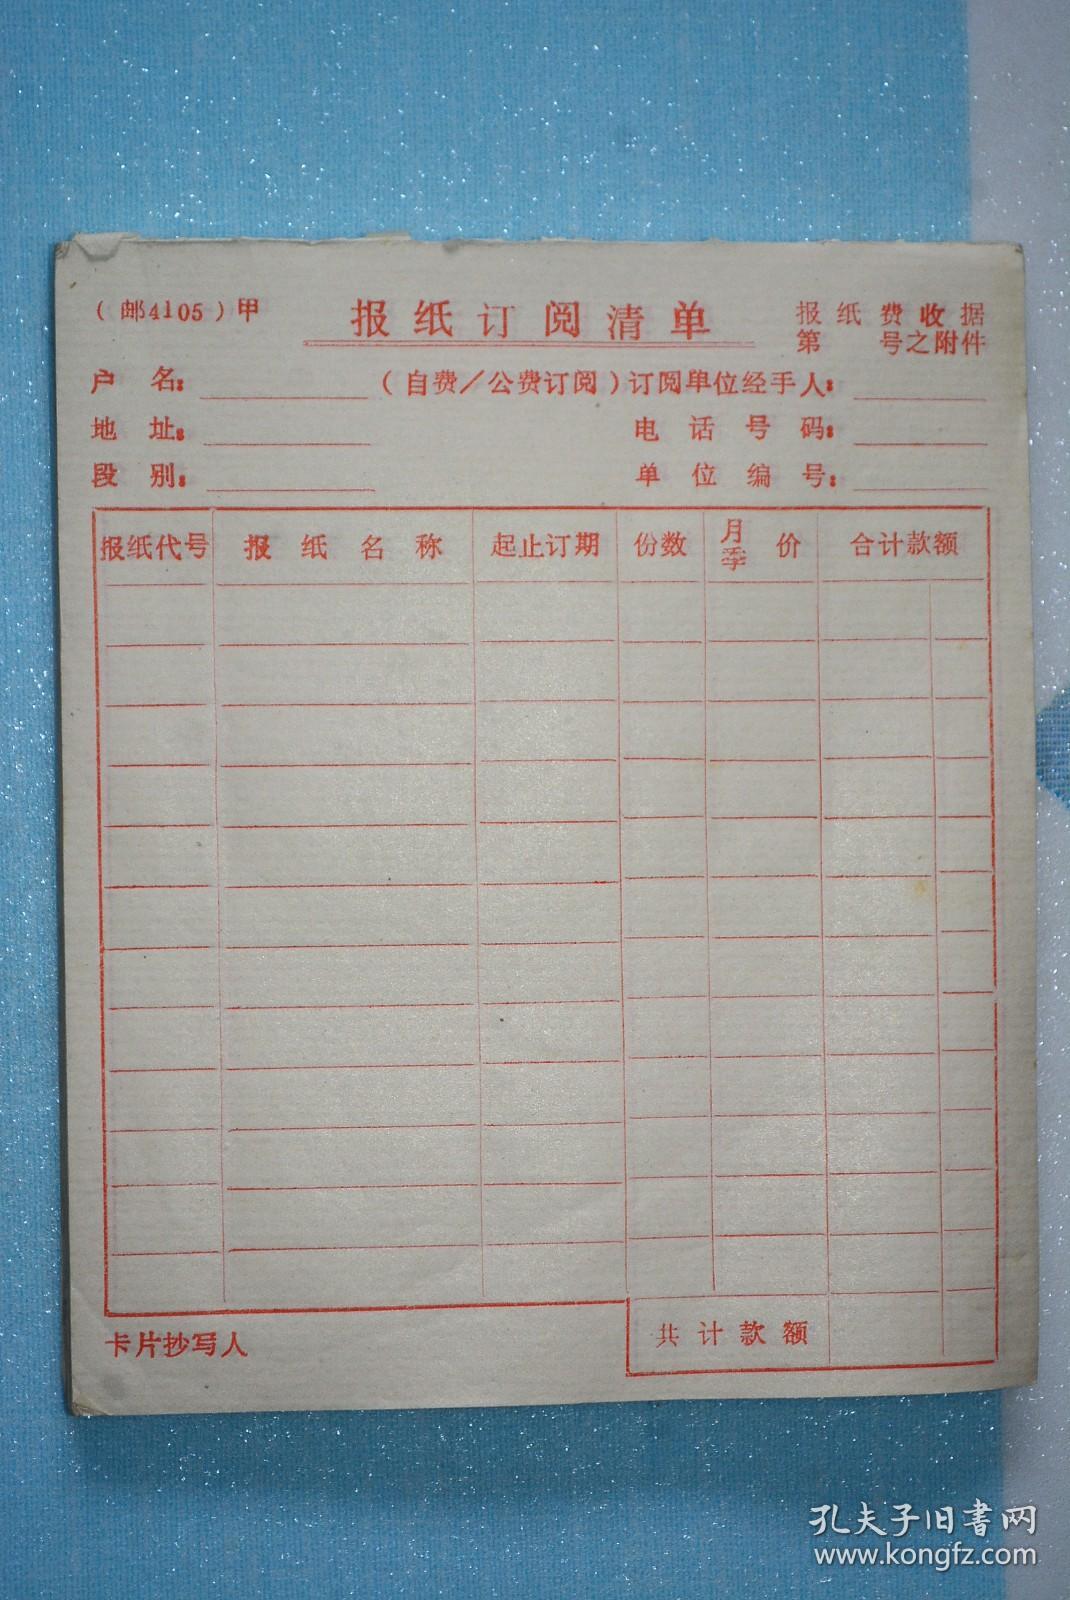 （邮4105）甲
报纸订阅清单
报纸费收据
第 号之附件
户名： （自费／公费订阅）订阅单位经手人：
地址： 电话号码：
段别： 单位编号：
报纸代号 报纸名称 起止订期 份数 月季价 合计款额
共计款额
卡片抄写人
孔夫子旧书网
www.kongfz.com